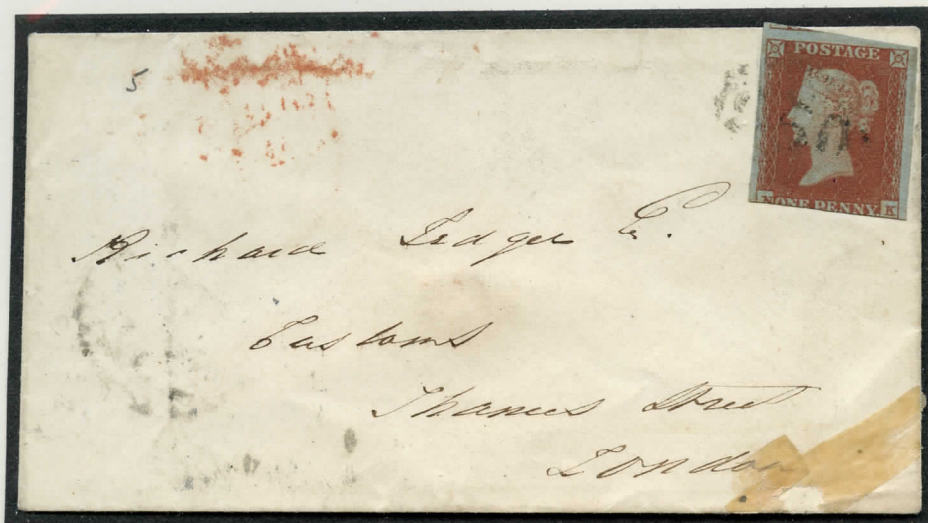 5
POSTAGE
ONE PENNY
K
Richard
Customs
Thames Street
London